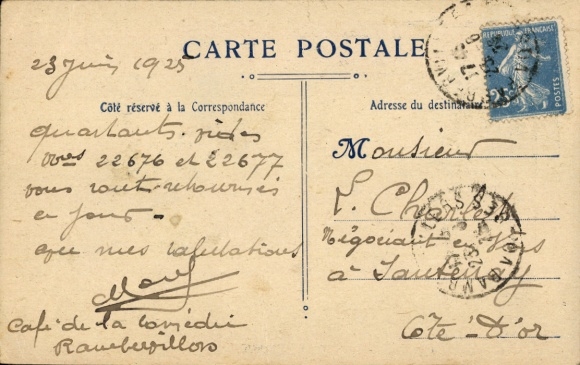 CARTE POSTALE
23 Juin 1925
Côté réservé à la Correspondance
quartauts vides
Nos 22676 et 22677
vous sont retournés
ce jour
mes salutations
Café de la Comédie
Rambervillers
Adresse du destinataire
RÉPUBLIQUE FRANÇAISE
POSTES
Monsieur
L.
Négociant en Vins
à Santenay
Côte-D'or